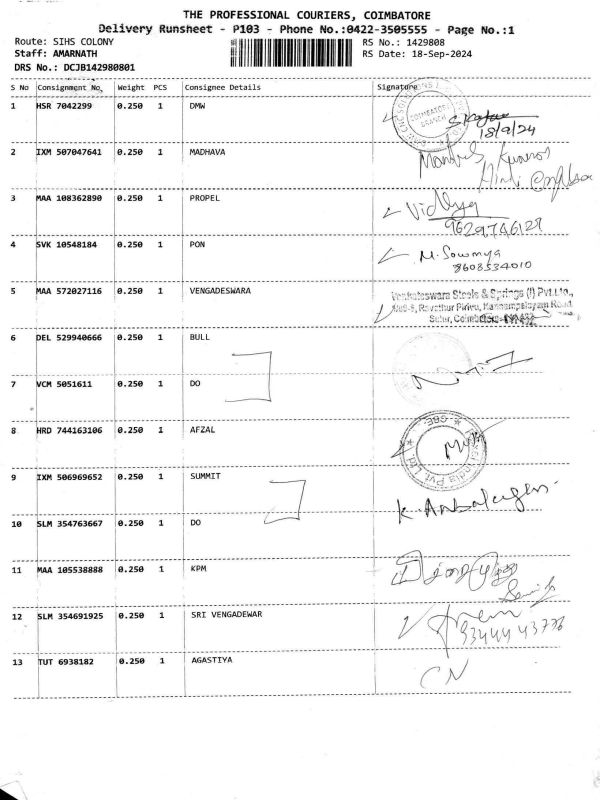 THE PROFESSIONAL COURIERS, COIMBATORE
Delivery Runsheet - P103 - Phone No.:0422-3505555 - Page No.:1
Route: SIHS COLONY
RS No.: 1429808
Staff: AMARNATH
RS Date: 18-Sep-2024
DRS No.: DCJB142980801
S No Consignment No. Weight PCS Consignee Details Signature
1 HSR 7042299 0.250 1 DMW
COIMBATORE
BRANCH
18/9/24
2 IXM 507047641 0.250 1 MADHAVA
3 MAA 108362890 0.250 1 PROPEL
Vidhya
9629746127
4 SVK 10548184 0.250 1 PON
M. Sowmya
8608534010
5 MAA 572027116 0.250 1 VENGADESWARA
Venkateswara Steels & Springs (I) Pvt.Ltd.,
Ravathur Pirivu, Kannampalayam Road,
Sulur, Coimbatore
6 DEL 529940666 0.250 1 BULL
7 VCM 5051611 0.250 1 DO
8 HRD 744163106 0.250 1 AFZAL
Pvt. Ltd.
9 IXM 506969652 0.250 1 SUMMIT
10 SLM 354763667 0.250 1 DO
11 MAA 105538888 0.250 1 KPM
12 SLM 354691925 0.250 1 SRI VENGADEWAR
Prem
9344443776
13 TUT 6938182 0.250 1 AGASTIYA
CN